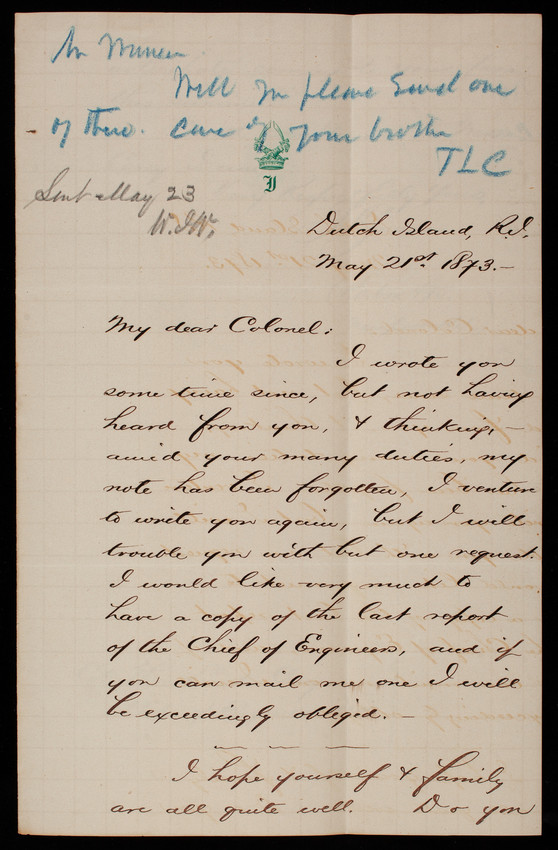 Mr Winner
Will you please send one
of these. Care of your brother
TLC
Sent May 23
W.J.W.
I
Dutch Island, R.I.
May 21st. 1873.-
My dear Colonel:
I wrote you
some time since, but not having
heard from you, & thinking, -
amid your many duties, my
note has been forgotten, I venture
to write you again, but I will
trouble you with but one request.
I would like very much to
have a copy of the last report
of the Chief of Engineers, and if
you can mail me one I will
be exceedingly obliged. -
I hope yourself & family
are all quite well. Do you